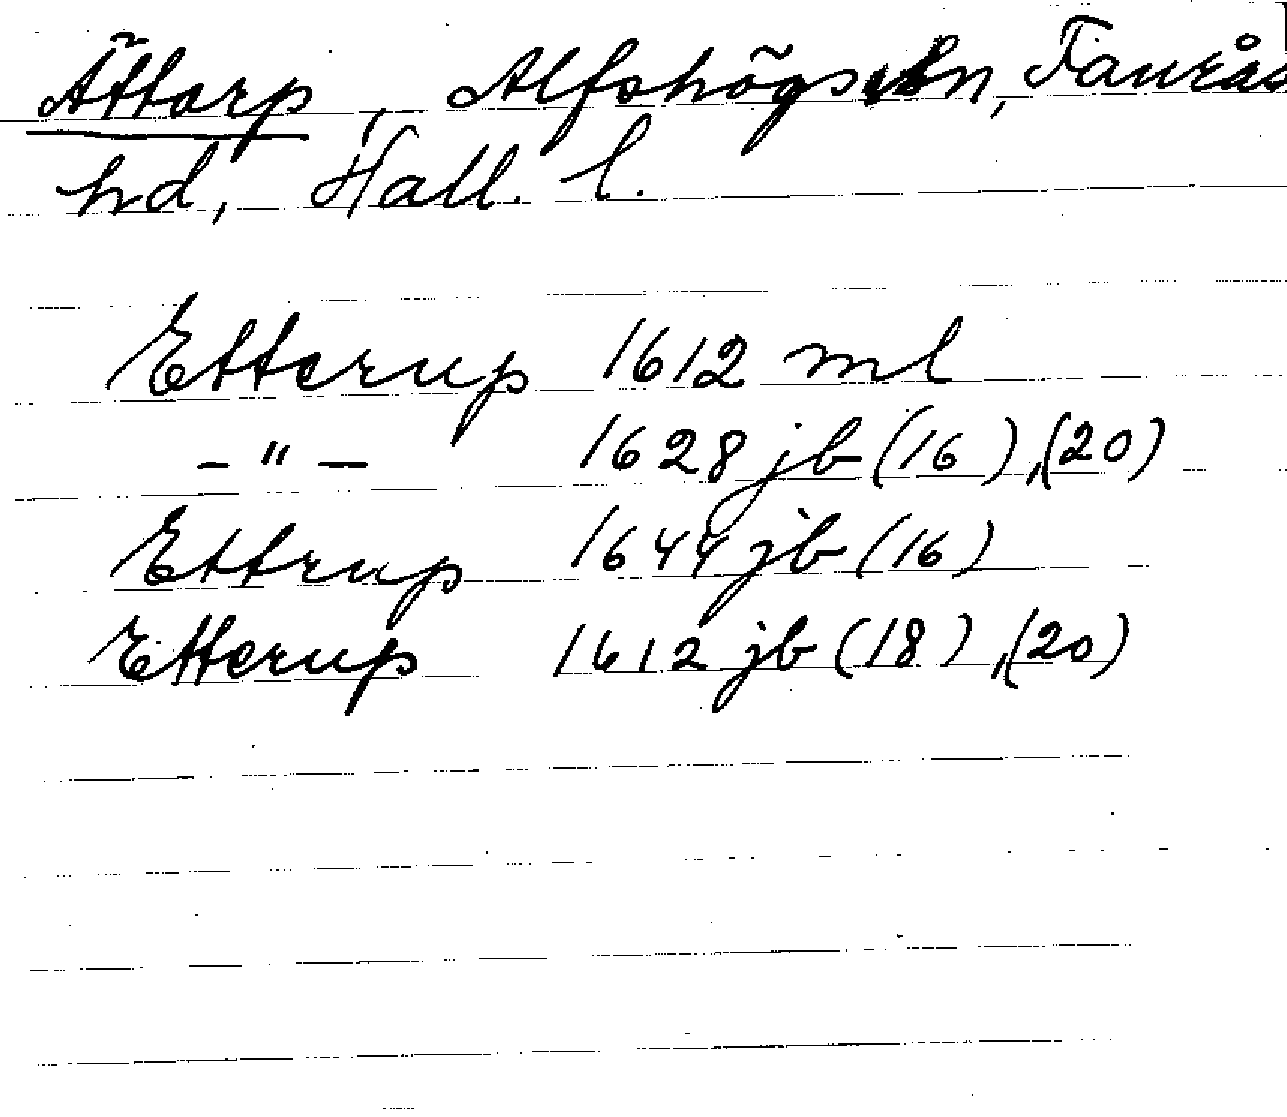 Ättorp, Alfshögs sn, Faurås
hd, Hall. l.
Etterup 1612 ml
- " - 1628 jb (16), (20)
Ettrup 1644 jb (16)
Etterup 1612 jb (18), (20)